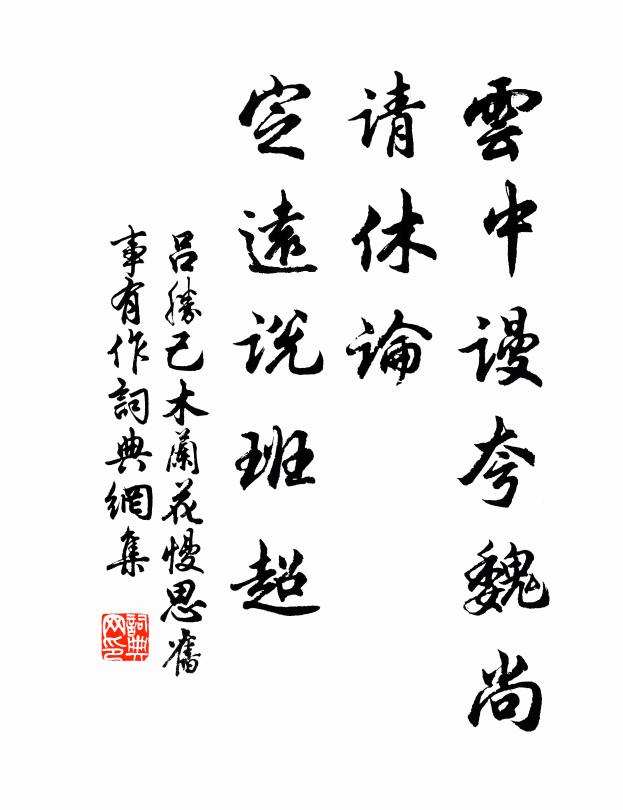 雲中謾夸魏尚
请休論
定遠説班超
呂勝己木蘭花慢思舊
事有作詞典網集
詞典网印